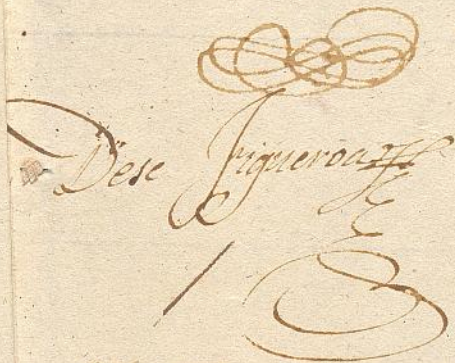 Dese Figueroa